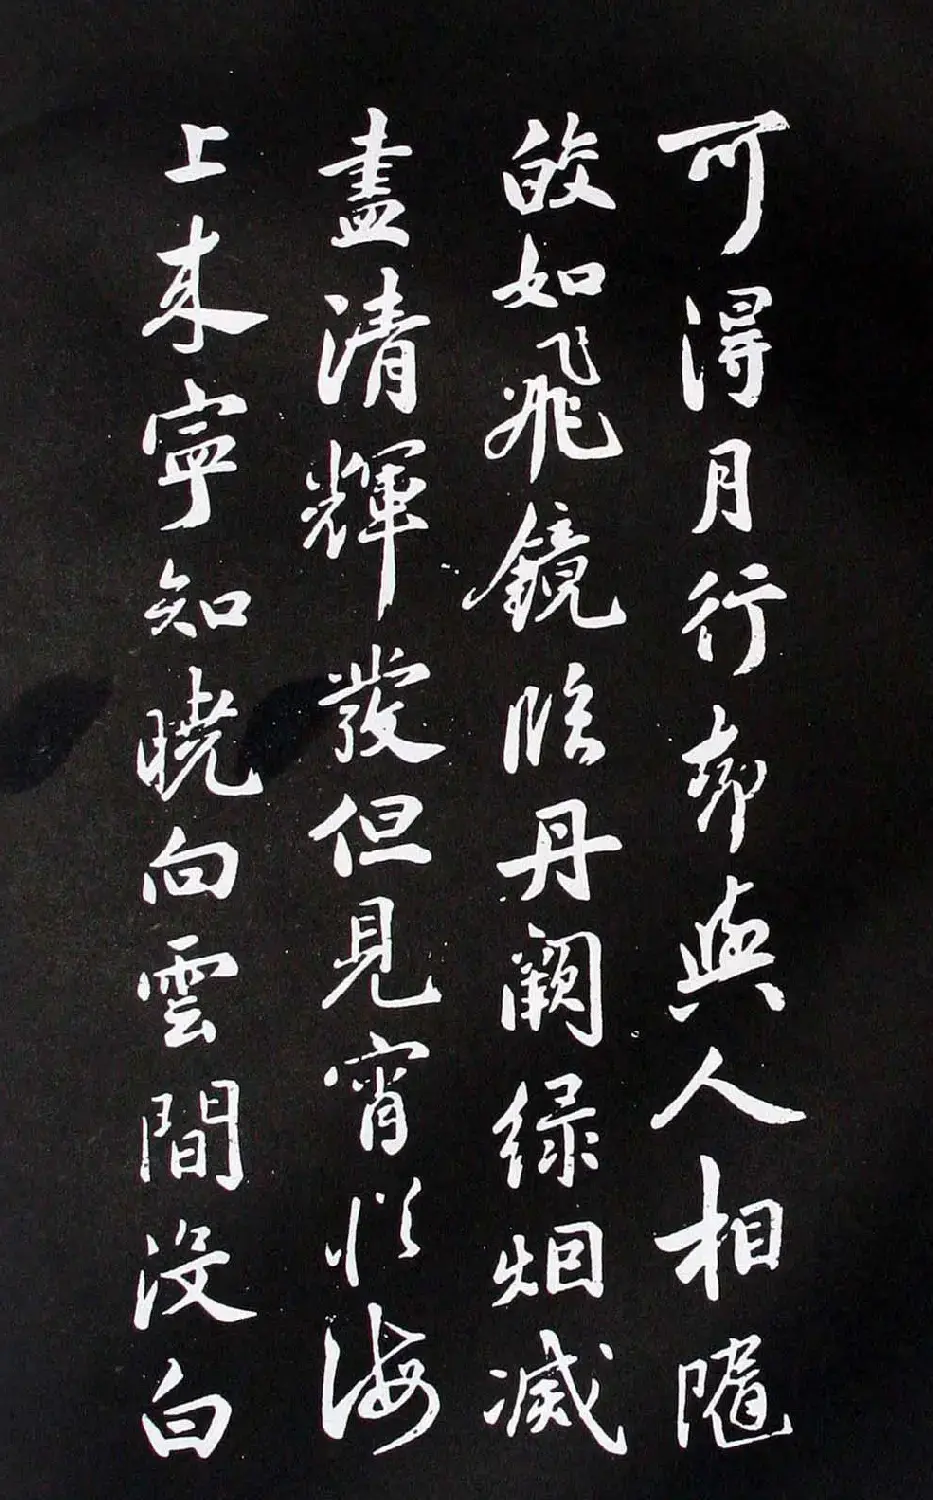 可得月行卻與人相隨
皎如飛鏡臨丹闕綠烟滅
盡清輝發但見宵從海
上来寧知曉向雲間没白